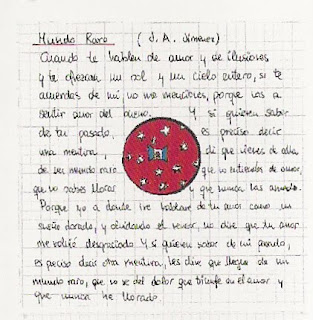 Mundo Raro (J. A. Jimenez)
Cuando te hablen de amor y de ilusiones
y te ofrezcan un sol y un cielo entero, si te
acuerdas de mi no me menciones, porque vas a
sentir amor del bueno. Y si quieren saber
de tu pasado, es preciso decir
una mentira, di que vienes de alla,
de un mundo raro que no entiendes de amor,
que no sabes llorar que nunca has amado.
Porque yo a donde ire hablare de tu amor como un
sueño dorado, y olvidando el rencor, no dire que tu amor
me volvió desgraciado. Y si quieren saber de mi pasado,
es preciso decir otra mentira, les dire que llegue de un
mundo raro, que no se del dolor que triunfe en el amor y
que nunca he llorado.